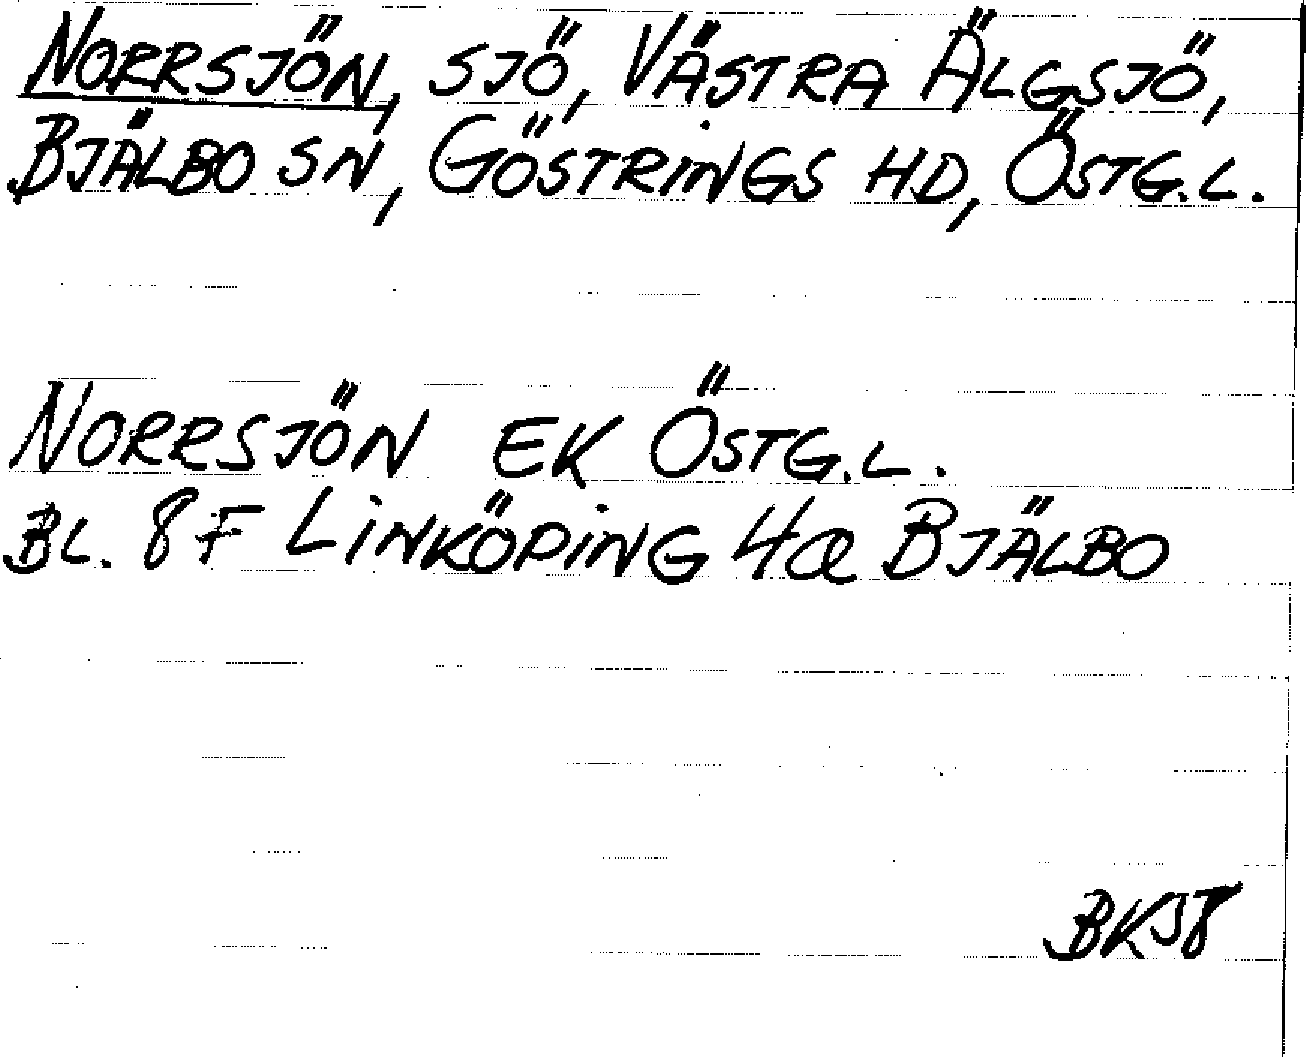 NORRSJÖN, SJÖ, VÄSTRA ÄLGSJÖ,
BJÄLBO SN, GÖSTRINGS HD, ÖSTG.L.
NORRSJÖN EK ÖSTG.L.
BL. 8F LINKÖPING 4a BJÄLBO